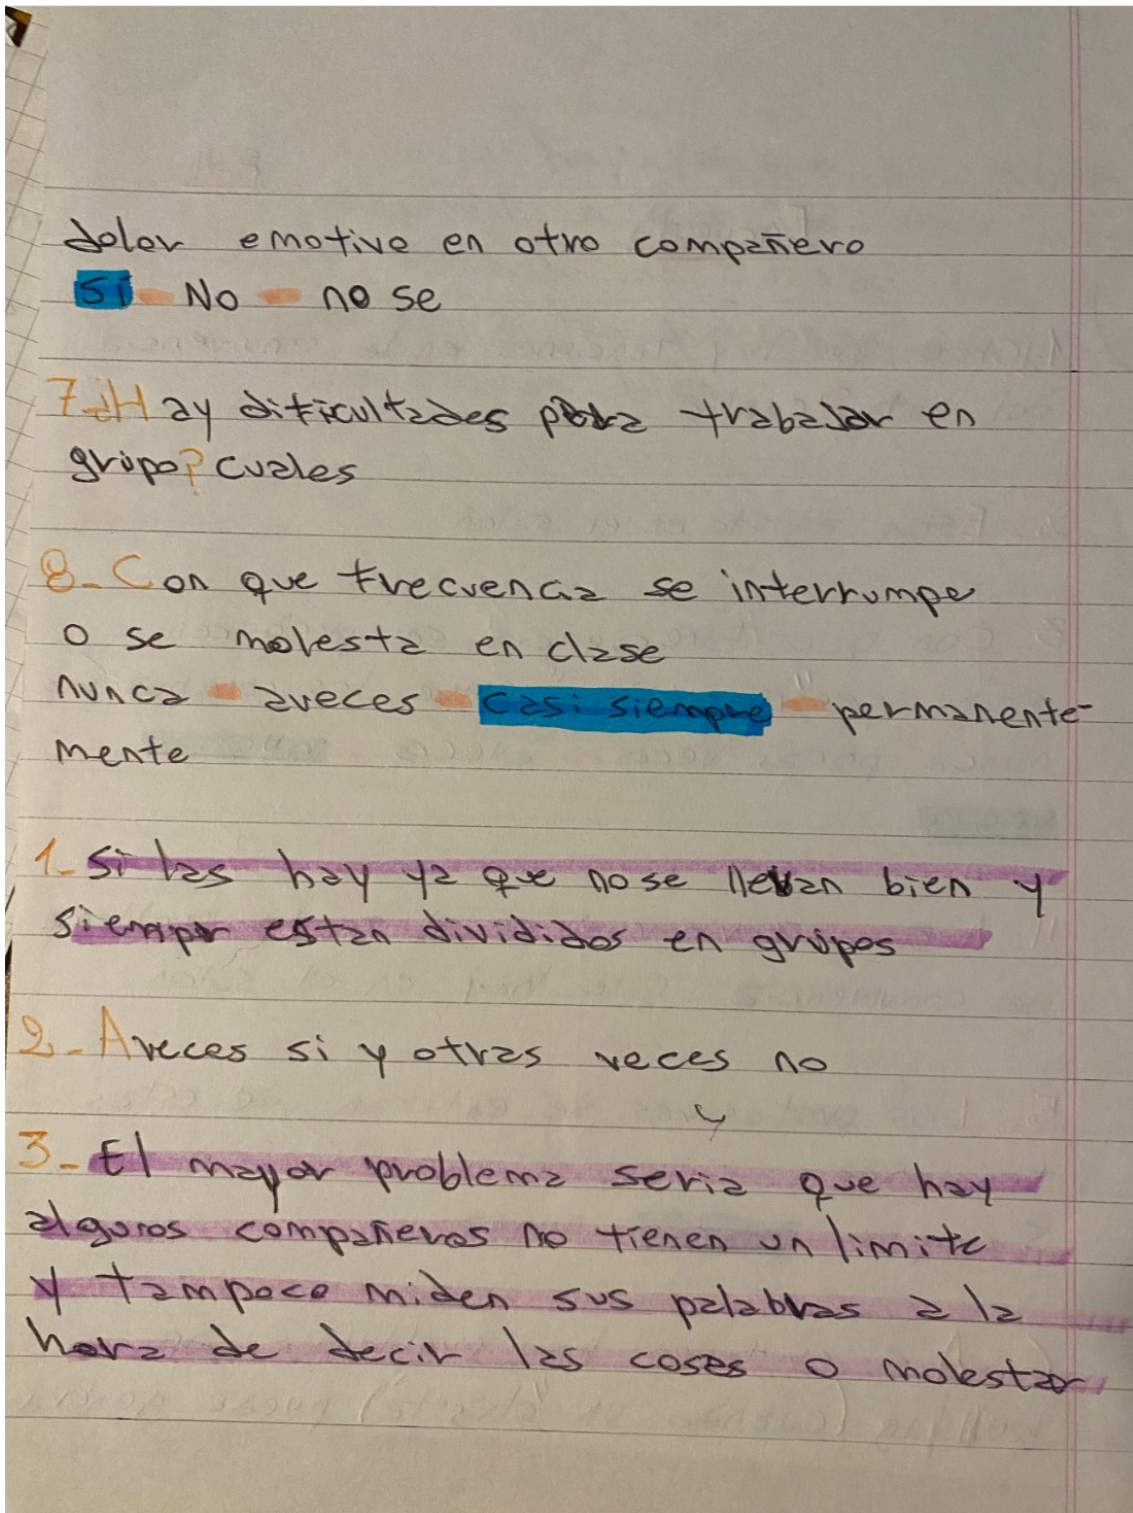 dolor emotivo en otro compañero
si - No - no se
7-¿Hay dificultades para trabajar en
grupo? cuales
8- Con que frecuencia se interrumpe
o se molesta en clase
nunca - aveces - casi siempre - permanente-
mente
1- Si las hay ya que nose llevan bien y
siempr estan divididos en grupos
2- Aveces si y otras veces no
3- El mayor problema seria que hay
algunos compañeros no tienen un limite
y tampoco miden sus palabras a la
hora de decir las cosas o molestar